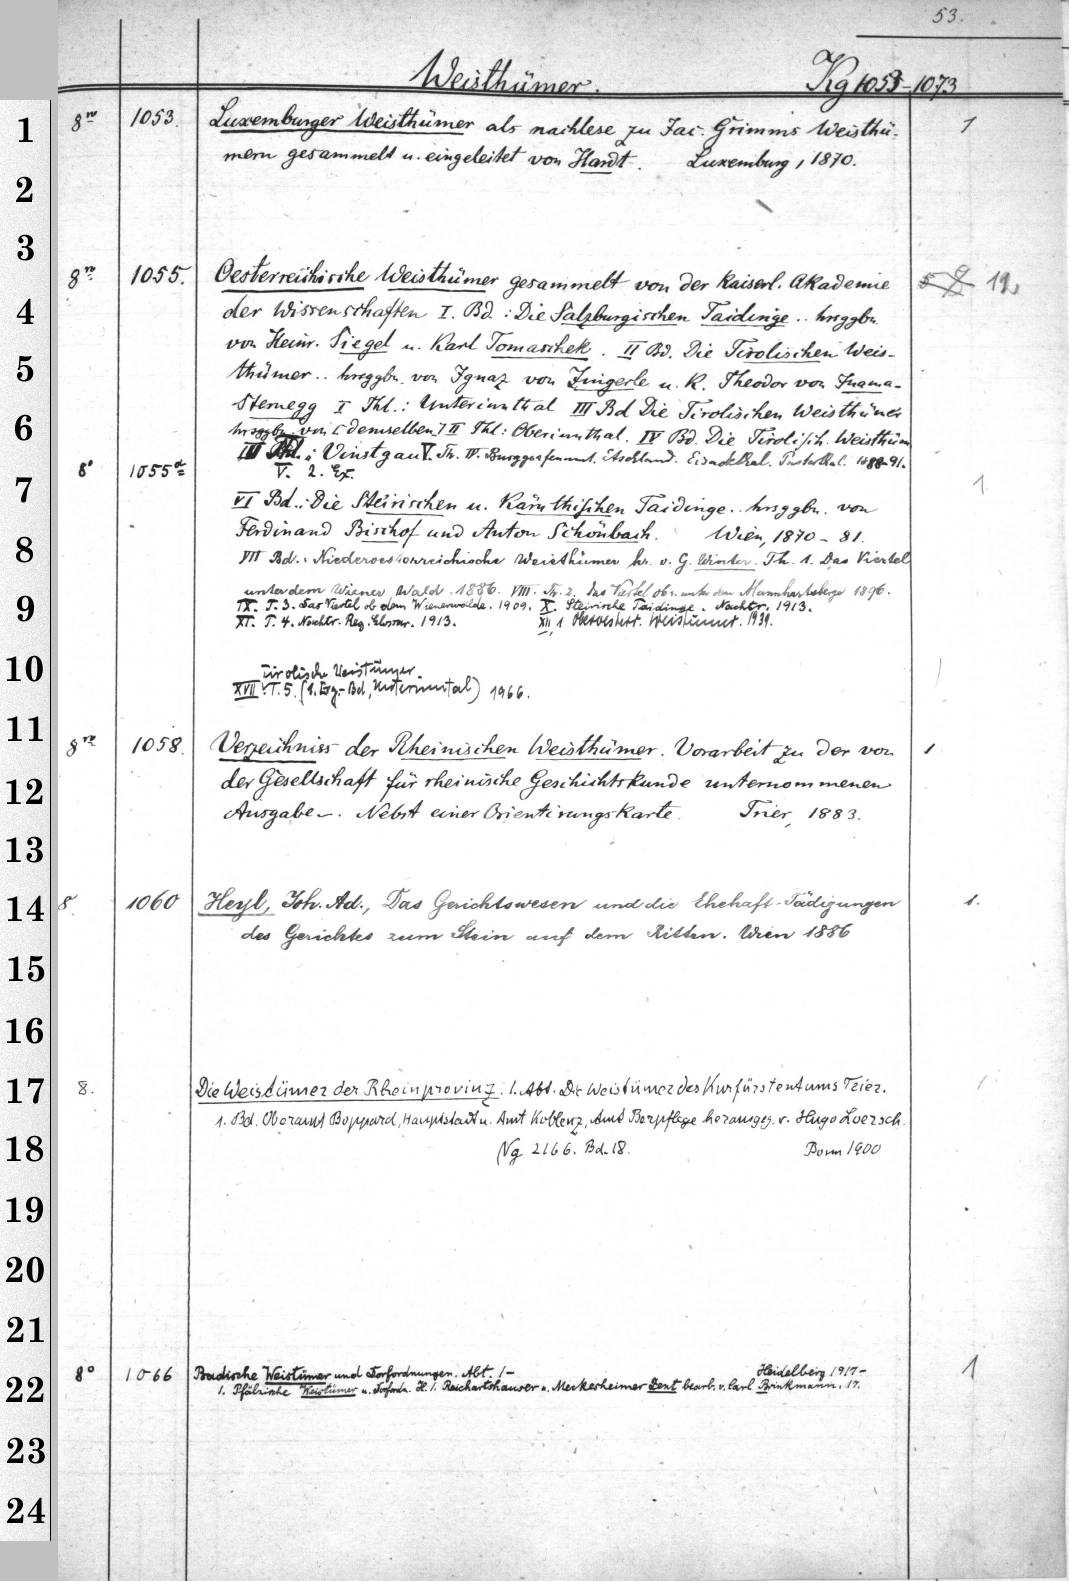 53.
Weisthümer. Kg 1053-1073
1 8vo 1053. Luxemburger Weisthümer als nachlese zu Jac. Grimms Weisthü- 1
mern gesammelt u. eingeleitet von Hardt. Luxemburg, 1870.
2
3
8vo 1055. Oesterreichische Weisthümer gesammelt von der Kaiserl. Akademie 12
4 der Wissenschaften I. Bd.: Die Salzburgischen Taidinge .. hrsggbn.
von Heinr. Siegel u. Karl Tomaschek. II Bd. Die Tirolischen Weis-
5 thümer .. hrsggbn. von Ignaz von Zingerle u. K. Theodor von Inama-
Sternegg I Thl.: Unterinnthal III Bd Die Tirolischen Weisthümer
6 hrsggbn. von [demselben] II Thl: Oberinnthal. IV Bd. Die Tirolisch. Weisthüm
III Thl.: Vinstgau V. Th. IV. Burggrafenamt. Etschland. Eisackthal. Pusterthal. 1888-91.
8° 1055a V. 2. Ex.
7 VI Bd.: Die Steirischen u. Kärnthischen Taidinge .. hrsggbn. von 1
8 Ferdinand Bischof und Anton Schönbach. Wien, 1870-81.
VII Bd.: Niederoesterreichische Weisthümer hr. v. G. Winter. Th. 1. Das Viertel
unter dem Wiener Wald. 1886. VIII. Th. 2. Das Viertel ob u. unter dem Mannhartsberge 1896.
9 IX. T. 3. Das Viertel ob dem Wienerwalde. 1909. X. Steirische Taidinge. Nachtr. 1913.
XI. T. 4. Nachtr. Reg. Glossar. 1913. XII, 1 Oberösterr. Weistümer. 1939.
10 Tirolische Weistümer
XVII: T. 5. (1. Erg.-Bd, Unterinntal) 1966.
11 8vo 1058. Verzeichniss der Rheinischen Weisthümer. Vorarbeit zu der von 1
12 der Gesellschaft für rheinische Geschichtskunde unternommenen
Ausgabe. Nebst einer Orientirungskarte. Trier, 1883.
13
14 8. 1060 Heyl, Joh. Ad., Das Gerichtswesen und die Ehehaft-Tädigungen 1.
des Gerichtes zum Stein auf dem Ritten. Wien 1886
15
16
17 8. Die Weistümer der Rheinprovinz. 1. Abt. Die Weistümer des Kurfürstentums Trier.
1. Bd. Oberamt Boppard, Hauptstadt u. Amt Koblenz, Amt Bergpflege herausgeg. v. Hugo Loersch.
18 Ng 2166. Bd. 18. Bonn 1900
19
20
21
8° 1066 Badische Weistümer und Dorfordnungen. Abt. 1- Heidelberg 1917- 1
22 1. Pfälzische Weistümer u. Dorfordn. H. 1. Reichartshauser u. Meckesheimer Zent bearb. v. Carl Brinkmann. 17.
23
24